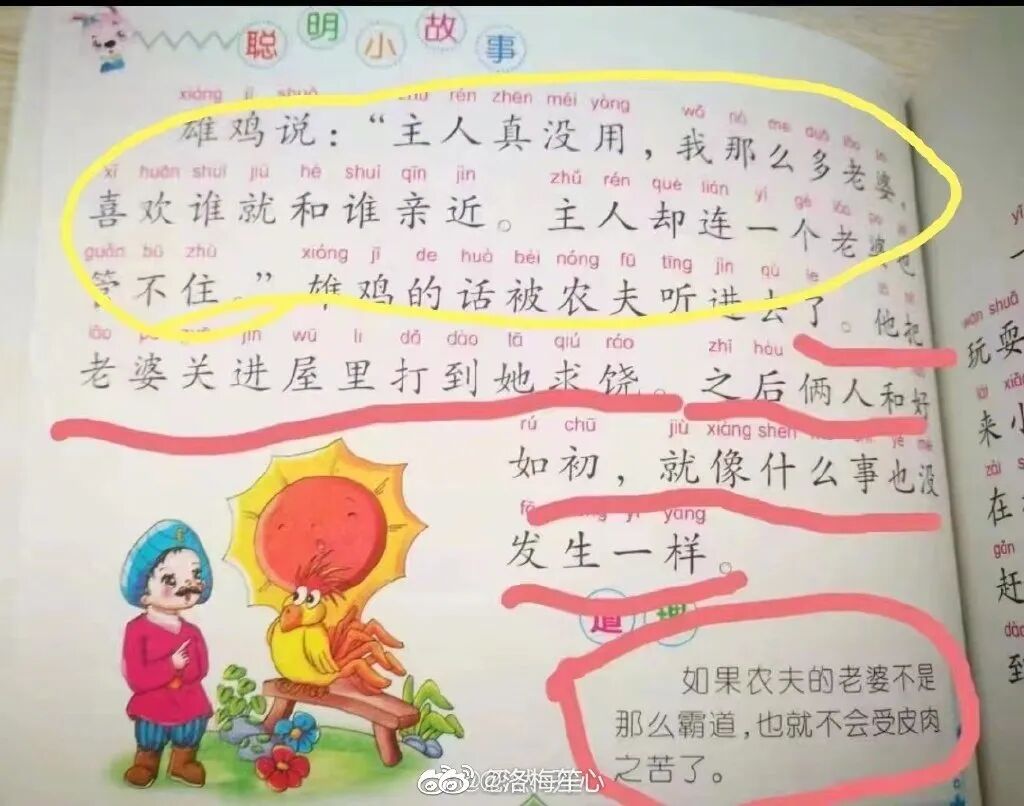 聪明小故事
xióng jī shuō zhǔ rén zhēn méi yòng wǒ nà me duō lǎo
雄鸡说：“主人真没用，我那么多老婆，
xǐ huān shuí jiù hé shuí qīn jìn zhǔ rén què lián yí gè lǎo
喜欢谁就和谁亲近。主人却连一个老婆也
guǎn bú zhù xióng jī de huà bèi nóng fū tīng jìn qù le
管不住。”雄鸡的话被农夫听进去了。他把
lǎo guān jìn wū li dǎ dào tā qiú ráo zhī hòu
老婆关进屋里打到她求饶。之后俩人和好
rú chū jiù xiàng shén yě
如初，就像什么事也没
yí yàng
发生一样。
道理
如果农夫的老婆不是
那么霸道，也就不会受皮肉
之苦了。
wán shuǎ
玩耍
来小
zài
在
gǎn
赶
到
@洛梅笙心